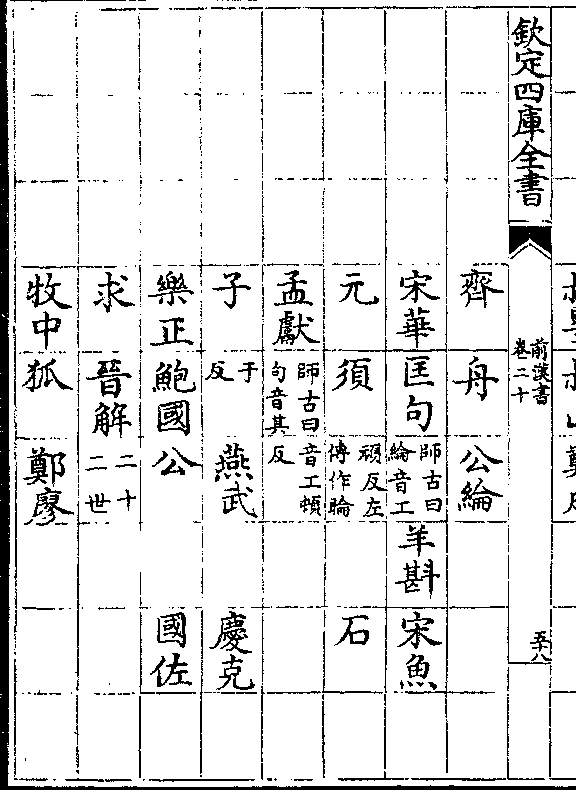 欽定四庫全書
前漢書
卷二十
五十八
齊 舟 公綸
宋華 匡句 師古曰綸音工 羊斟 宋魚
元 須 頑反左傳作睔 石
孟獻 師古曰句音其 音工頓反
子 于反 燕武 慶克
樂正 鮑國 公 國佐
求 晉解 二十二世
牧中 狐 鄭廖